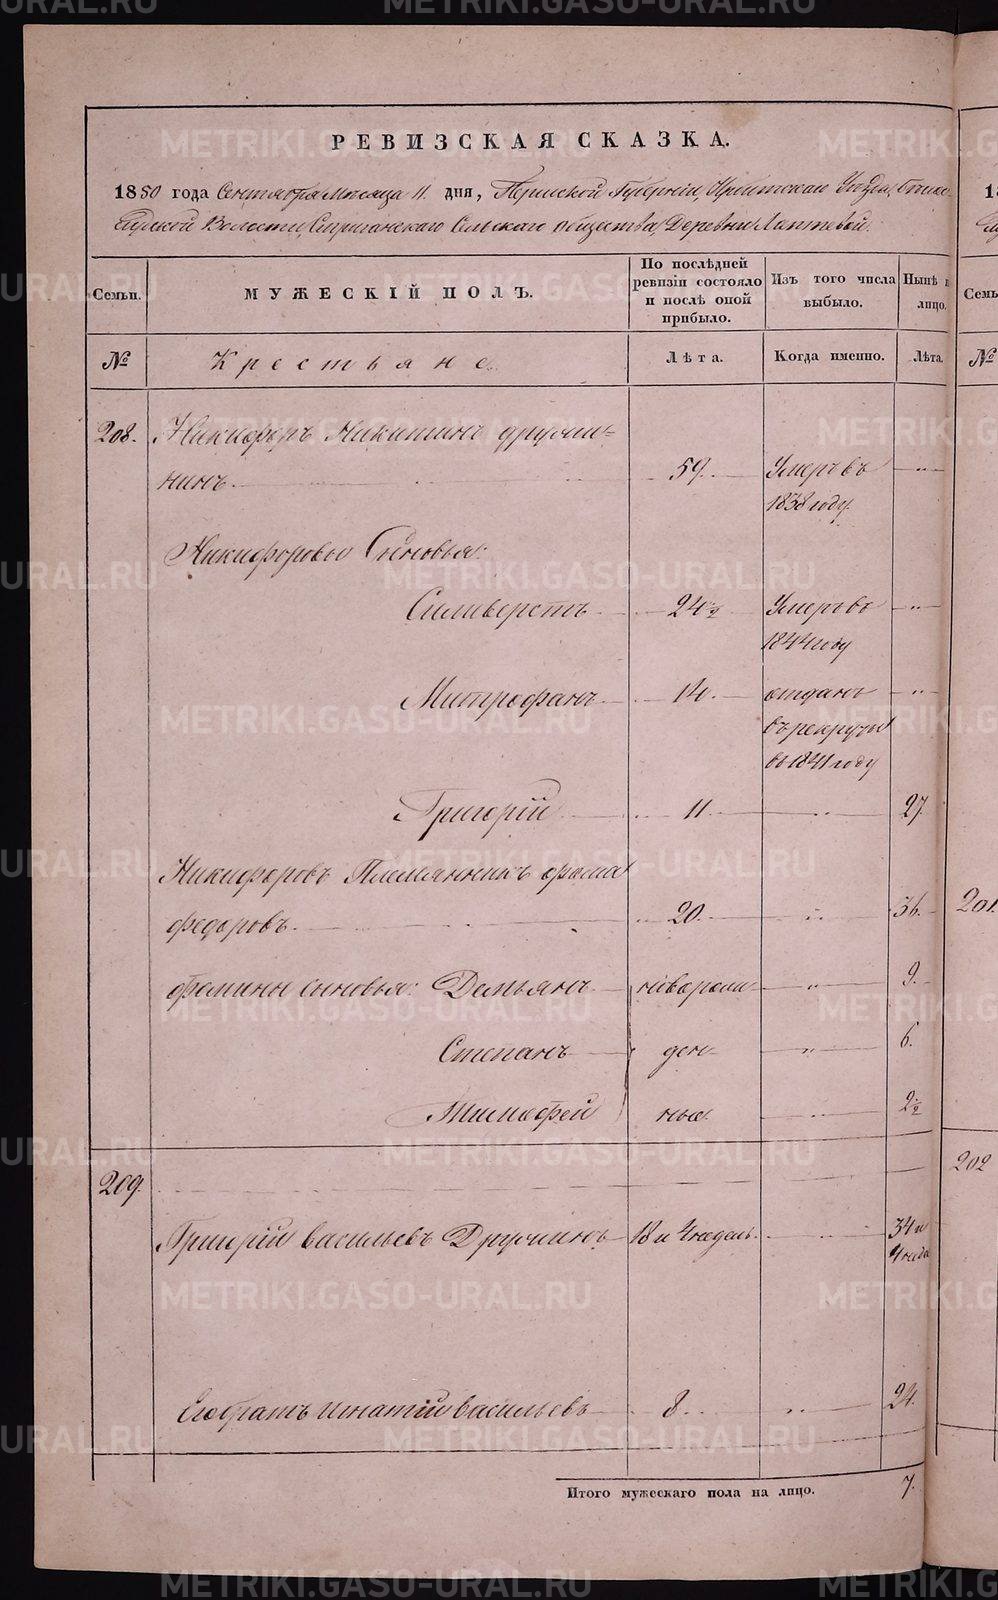 РЕВИЗСКАЯ СКАЗКА.
1850 года Сентября месяца 11 дня, Пермской Губернии, Ирбитскаго Уезда,
Волости, Стриганскаго Сельскаго общества, Деревни Лаптевой.
Семьи. МУЖЕСКІЙ ПОЛЪ. По послѣдней ревизіи состояло и послѣ оной прибыло. Изъ того числа выбыло. Нынѣ лицо.
№ Крестьяне. Лѣта. Когда именно. Лѣта.
208. Никифоръ Никитинъ Дружи=
нинъ. 59. Умеръ въ "
1838 году.
Никифоровы Сыновья:
Силиверстъ 24½ Умеръ въ "
1844 году
Митрофанъ 14. отданъ "
въ рекруты
въ 1841 году
Григорій 11 " 27.
Никифоровъ Племянникъ Фома
Федоровъ. 20. " 36.
Фомины сыновья: Демьянъ новорож " 9.
Степанъ ден " 6.
Тимофей ные. " 2½
209.
Григорій Васильевъ Дружининъ 18 и 4 недель. " 34 и
4 неде
Его братъ Игнатій Васильевъ 8 " 24.
Итого мужескаго пола на лицо. 7.
18
Семь
№
201.
202
METRIKI.GASO-URAL.RU